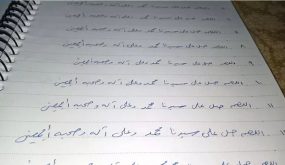 اللهم صل على سيدنا محمد وعلى آله وصحبه أجمعين
اللهم صل على سيدنا محمد وعلى آله وصحبه أجمعين
اللهم صل على سيدنا محمد وعلى آله وصحبه أجمعين
اللهم صل على سيدنا محمد وعلى آله وصحبه أجمعين
اللهم صل على سيدنا محمد وعلى آله وصحبه أجمعين
اللهم صل على سيدنا محمد وعلى آله وصحبه أجمعين
اللهم صل على سيدنا محمد وعلى آله وصحبه أجمعين